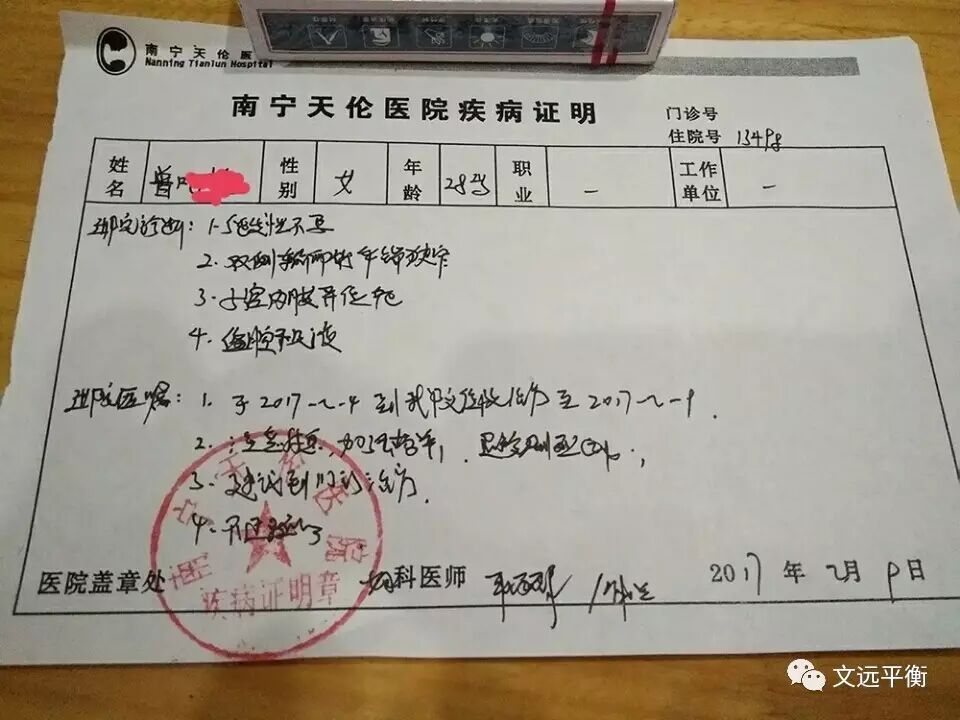 南宁天伦医
Nanning Tianlun Hospital
南宁天伦医院疾病证明
门诊号
住院号 13498
姓名 曾 性别 女 年龄 28岁 职业 - 工作单位 -
出院诊断: 1. 继发性不孕
2. 双侧输卵管
3. 子宫内膜异位
4. 盆腔积液
出院医嘱: 1. 于2017-2-4到我院住院治疗至2017-2-9.
2. 注意休息,加强营养,
3. 建议到门诊治疗.
4.
医院盖章处 妇科医师 2017年2月9日
南宁天伦医院
疾病证明章
文远平衡